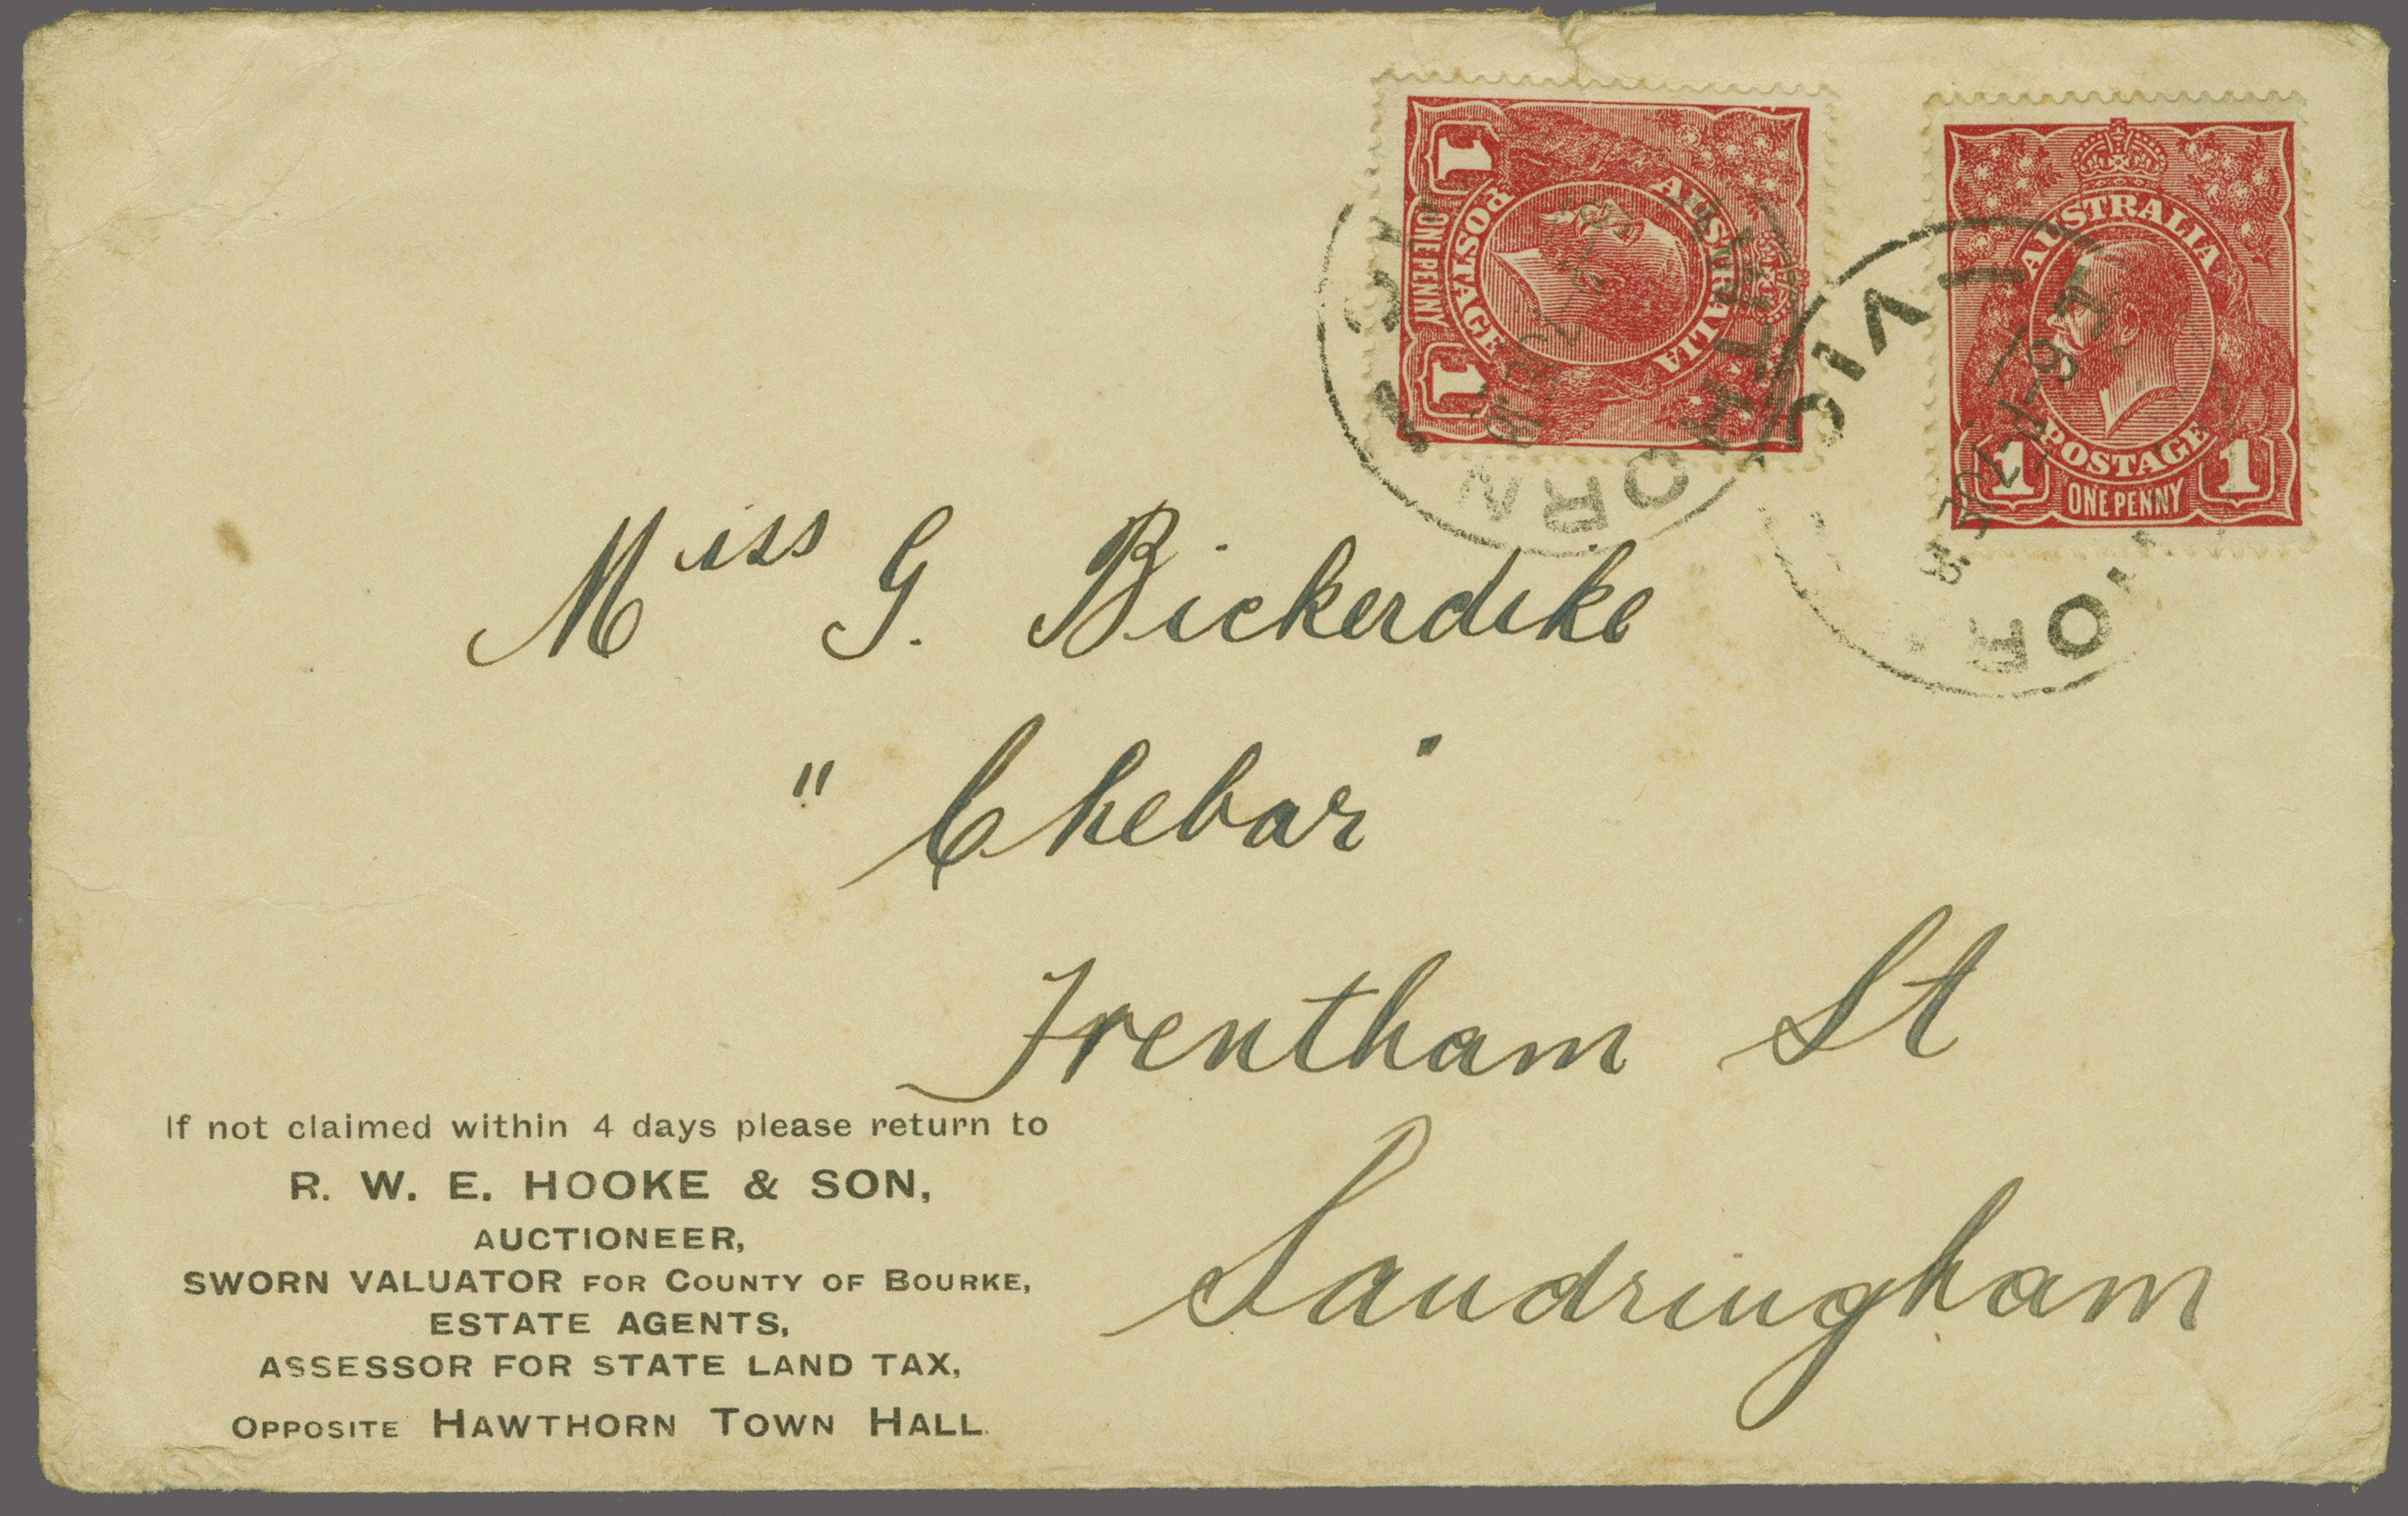 AUSTRALIA
POSTAGE
1 1
ONE PENNY
AUSTRALIA
POSTAGE
1 1
ONE PENNY
VIC
Miss G. Bickerdike
"Chebar"
Trentham St
Sandringham
If not claimed within 4 days please return to
R. W. E. HOOKE & SON,
AUCTIONEER,
SWORN VALUATOR FOR COUNTY OF BOURKE,
ESTATE AGENTS,
ASSESSOR FOR STATE LAND TAX,
OPPOSITE HAWTHORN TOWN HALL.